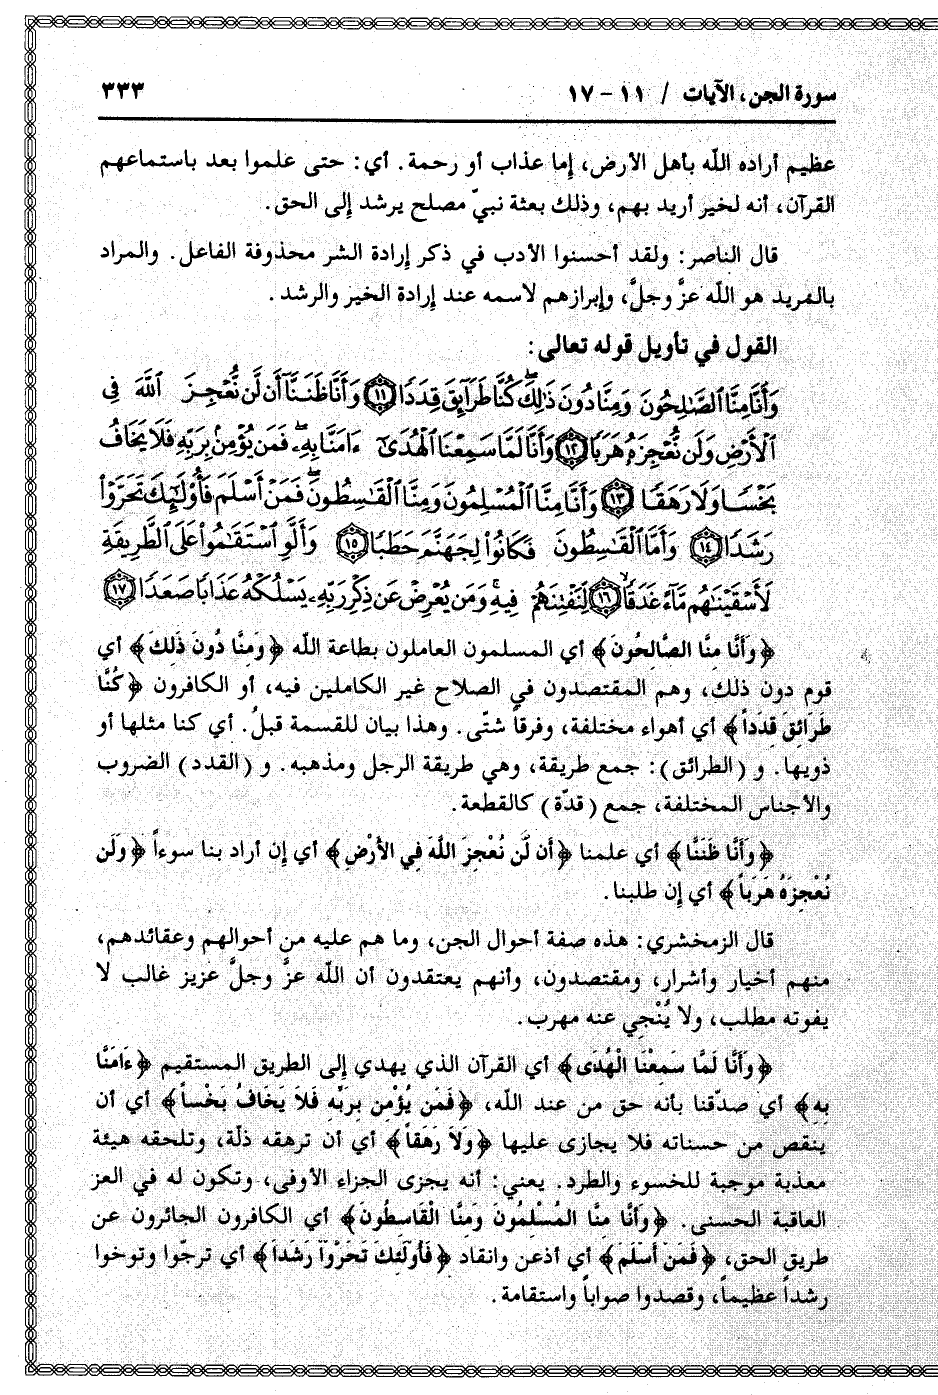 سورة الجن، الآيات / ١١ - ١٧ ٣٣٣
عظيم أراده اللّه بأهل الأرض، إما عذاب أو رحمة. أي: حتى علموا بعد باستماعهم
القرآن، أنه لخير أريد بهم، وذلك بعثة نبيّ مصلح يرشد إلى الحق.
قال الناصر: ولقد أحسنوا الأدب في ذكر إرادة الشر محذوفة الفاعل. والمراد
بالمريد هو اللّه عزَّ وجلَّ، وإبرازهم لاسمه عند إرادة الخير والرشد.
القول في تأويل قوله تعالى:
وَأَنَّا مِنَّا ٱلصَّٰلِحُونَ وَمِنَّا دُونَ ذَٰلِكَ ۖ كُنَّا طَرَآئِقَ قِدَدًا ⑪ وَأَنَّا ظَنَنَّآ أَن لَّن نُّعْجِزَ ٱللَّهَ فِى
ٱلْأَرْضِ وَلَن نُّعْجِزَهُۥ هَرَبًا ⑫ وَأَنَّا لَمَّا سَمِعْنَا ٱلْهُدَىٰٓ ءَامَنَّا بِهِۦ ۖ فَمَن يُؤْمِنۢ بِرَبِّهِۦ فَلَا يَخَافُ
بَخْسًا وَلَا رَهَقًا ⑬ وَأَنَّا مِنَّا ٱلْمُسْلِمُونَ وَمِنَّا ٱلْقَٰسِطُونَ ۖ فَمَنْ أَسْلَمَ فَأُو۟لَٰٓئِكَ تَحَرَّوْا۟
رَشَدًا ⑭ وَأَمَّا ٱلْقَٰسِطُونَ فَكَانُوا۟ لِجَهَنَّمَ حَطَبًا ⑮ وَأَلَّوِ ٱسْتَقَٰمُوا۟ عَلَى ٱلطَّرِيقَةِ
لَأَسْقَيْنَٰهُم مَّآءً غَدَقًا ⑯ لِّنَفْتِنَهُمْ فِيهِ ۚ وَمَن يُعْرِضْ عَن ذِكْرِ رَبِّهِۦ يَسْلُكْهُ عَذَابًا صَعَدًا ⑰
﴿وَأَنَّا مِنَّا الصَّالِحُونَ﴾ أي المسلمون العاملون بطاعة اللّه ﴿وَمِنَّا دُونَ ذَلِكَ﴾ أي
قوم دون ذلك، وهم المقتصدون في الصلاح غير الكاملين فيه، أو الكافرون ﴿كُنَّا
طَرَائِقَ قِدَداً﴾ أي أهواء مختلفة، وفرقاً شتّى. وهذا بيان للقسمة قبلُ. أي كنا مثلها أو
ذويها. و (الطرائق): جمع طريقة، وهي طريقة الرجل ومذهبه. و (القدد) الضروب
والأجناس المختلفة، جمع (قدّة) كالقطعة.
﴿وَأَنَّا ظَنَنَّا﴾ أي علمنا ﴿أَن لَّن نُعْجِزَ اللَّهَ فِي الأَرْضِ﴾ أي إن أراد بنا سوءاً ﴿وَلَن
نُعْجِزَهُ هَرَباً﴾ أي إن طلبنا.
قال الزمخشري: هذه صفة أحوال الجن، وما هم عليه من أحوالهم وعقائدهم،
منهم أخيار وأشرار، ومقتصدون، وأنهم يعتقدون أن اللّه عزَّ وجلَّ عزيز غالب لا
يفوته مطلب، ولا يُنْجِي عنه مهرب.
﴿وَأَنَّا لَمَّا سَمِعْنَا الْهُدَى﴾ أي القرآن الذي يهدي إلى الطريق المستقيم ﴿ءَامَنَّا
بِهِ﴾ أي صدّقنا بأنه حق من عند اللّه، ﴿فَمَن يُؤْمِن بِرَبِّهِ فَلاَ يَخَافُ بَخْساً﴾ أي أن
ينقص من حسناته فلا يجازى عليها ﴿وَلاَ رَهَقاً﴾ أي أن ترهقه ذلّة، وتلحقه هيئة
معذبة موجبة للخسوء والطرد. يعني: أنه يجزى الجزاء الأوفى، وتكون له في العز
العاقبة الحسنى. ﴿وَأَنَّا مِنَّا الْمُسْلِمُونَ وَمِنَّا الْقَاسِطُونَ﴾ أي الكافرون الجائرون عن
طريق الحق، ﴿فَمَنْ أَسْلَمَ﴾ أي أذعن وانقاد ﴿فَأُولَئِكَ تَحَرَّوْاْ رَشَداً﴾ أي ترجّوا وتوخوا
رشداً عظيماً، وقصدوا صواباً واستقامة.